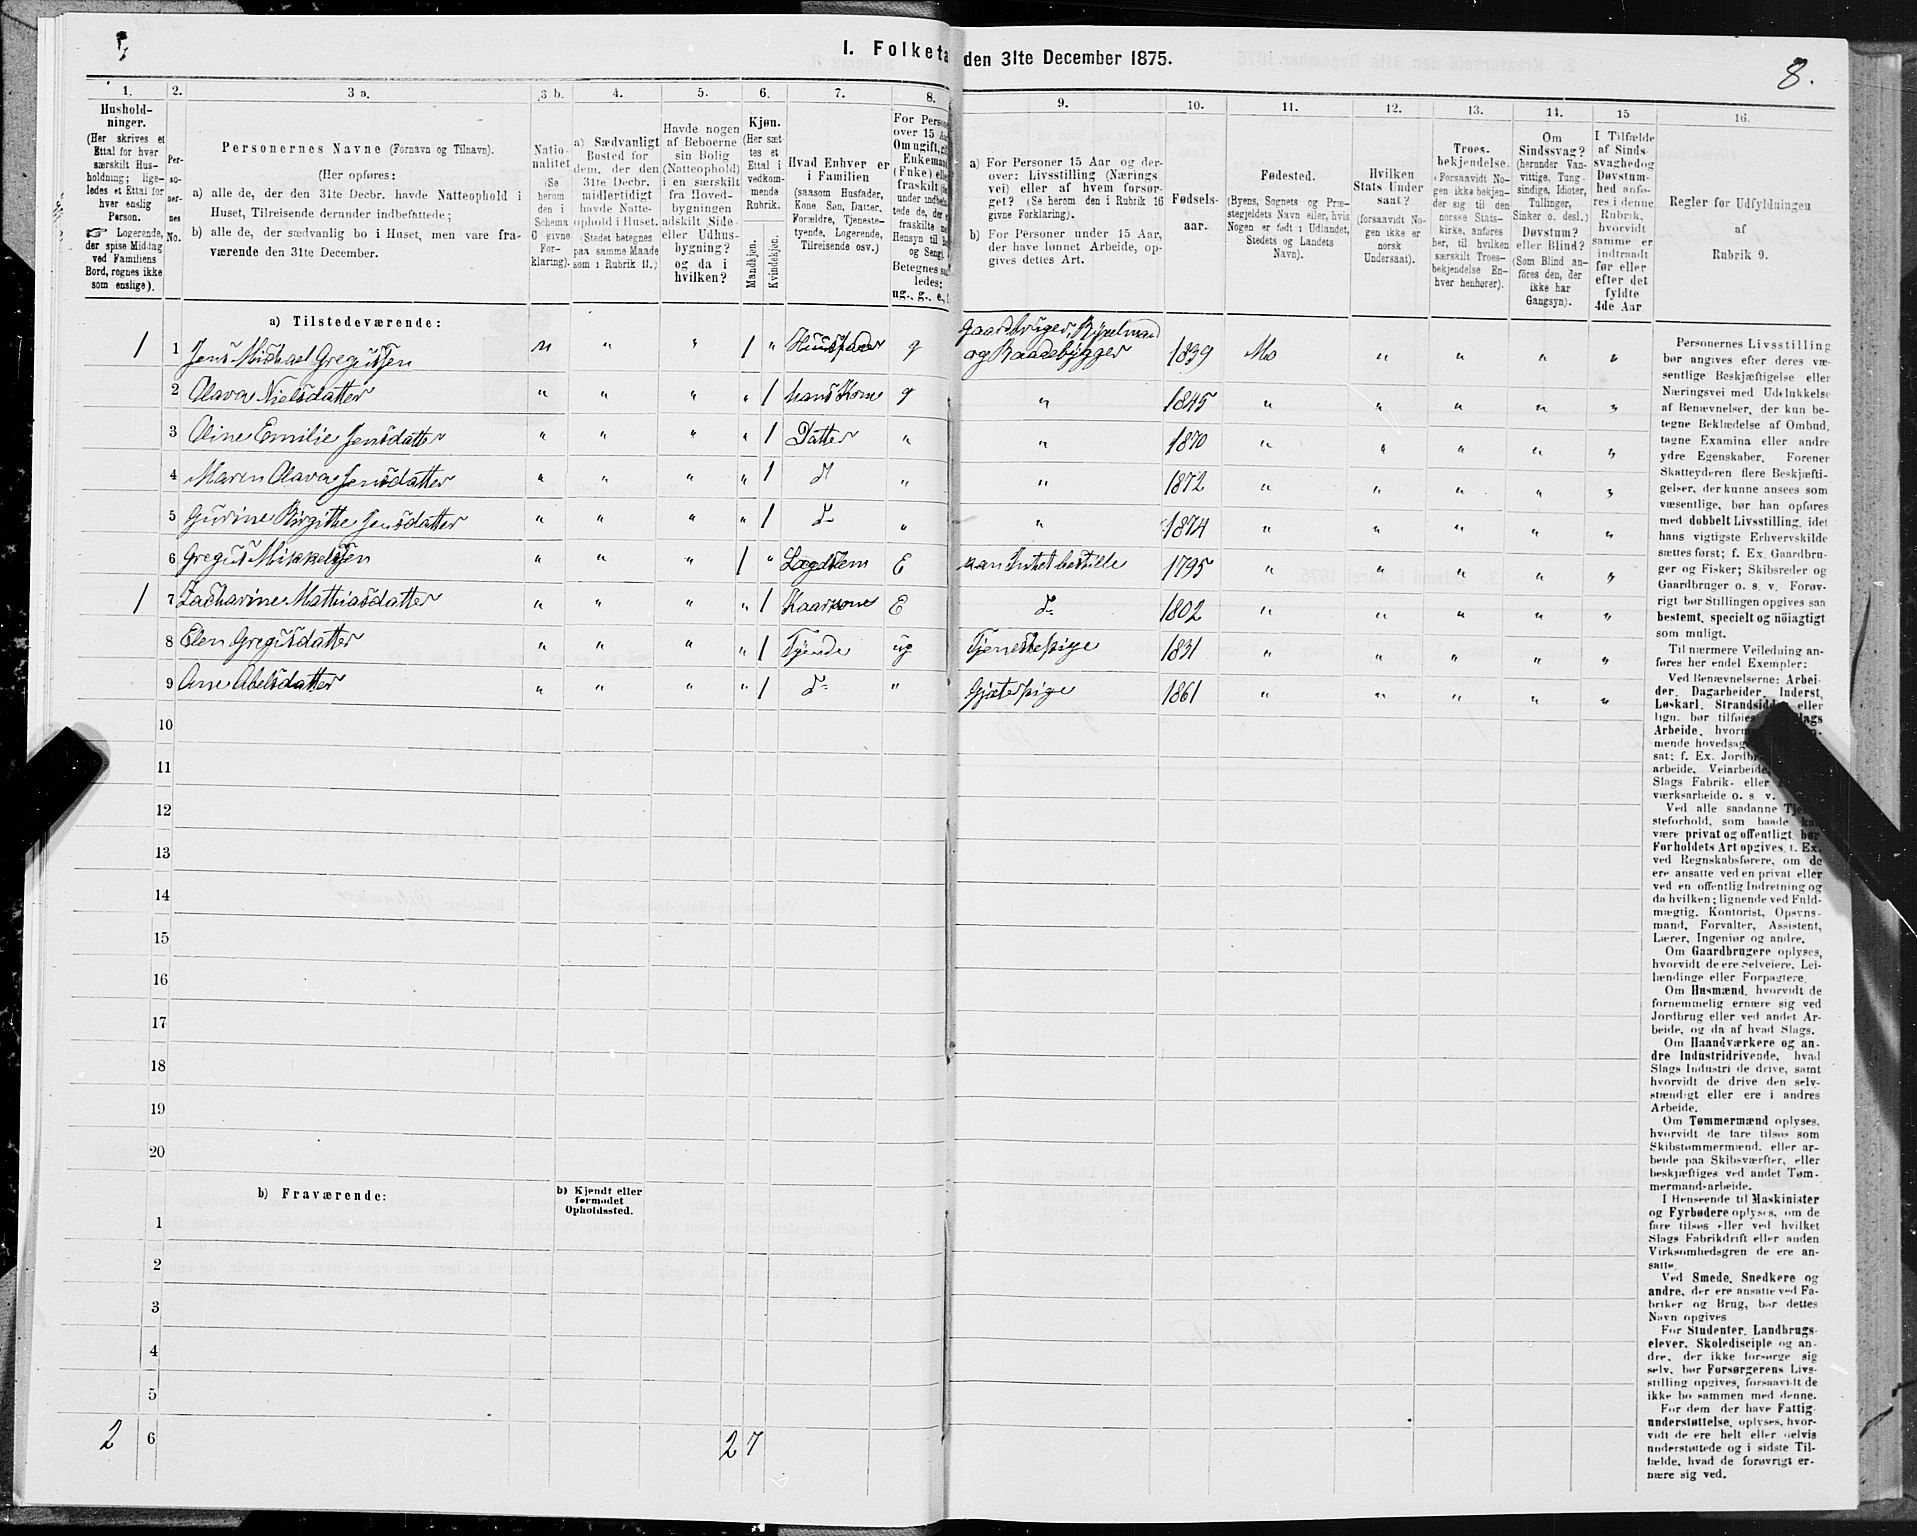 I. Folketa
den 31te December 1875.
8.
1. 2. 3 a. 3 b. 4. 5. 6. 7. 8. 9. 10. 11. 12. 13. 14. 15 16.
Hushold-
ninger.
(Her skrives et
Ettal for hver
særskilt Hus-
holdning; lige-
ledes et Ettal for
hver enslig
Person.
☞ Logerende,
der spise Middag
ved Familiens
Bord, regnes ikke
som enslige).
Per-
so-
ner-
nes
No.
Personernes Navne (Fornavn og Tilnavn).
(Her opføres:
a) alle de, der den 31te Decbr. havde Natteophold i
Huset, Tilreisende derunder indbefattede;
b) alle de, der sædvanlig bo i Huset, men vare fra-
værende den 31te December.
Natio-
nalitet
(Se
herom
den i
Schema
0 givne
For-
klaring).
a) Sædvanligt
Bosted for
dem, der den
31te Decbr.
midlertidigt
havde Natte-
ophold i Huset.
(Stedet betegnes
paa samme Maade
som i Rubrik 11.)
Havde nogen
af Beboerne
sin Bolig
(Natteophold)
i en særskilt
fra Hoved-
bygningen
adskilt Side-
eller Udhus-
bygning?
og da i
hvilken?
Kjøn.
(Her sæt-
tes et
Ettal i
vedkom-
mende
Rubrik.
Mandkjøn.
Kvindekjøn.
Hvad Enhver er
i Familien
(saasom Husfader,
Kone Søn, Datter,
Forældre, Tjeneste-
tyende, Logerende,
Tilreisende osv.)
For Persone
over 15 Aa
Om ugift, gif
Enkemand
(Enke) elle
fraskilt
under indbefat
tede de, der e
fraskilte me
Hensyn til B
og Seng).
Betegnes saa
ledes:
ug., g., e., f.
a) For Personer 15 Aar og der-
over: Livsstilling (Nærings
vei) eller af hvem forsør-
get? (Se herom den i Rubrik 16
givne Forklaring).
b) For Personer under 15 Aar,
der have lønnet Arbeide, op-
gives dettes Art.
Fødsels-
aar.
Fødested.
(Byens, Sognets og Præ-
stegjeldets Navn eller, hvis
Nogen er født i Udlandet,
Stedets og Landets
Navn).
Hvilken
Stats Under
saat?
(forsaavidt No-
gen ikke er
norsk
Undersaat).
Troes-
bekjendelse.
(Forsaavidt No-
gen ikke bekjen-
der sig til den
norske Stats-
kirke, anføres
her, til hvilken
særskilt Troes-
bekjendelse En-
hver henhører).
Om
Sindssvag?
(herunder Van-
vittige, Tung-
sindige, Idioter,
Tullinger,
Sinker o. desl.)
Døvstum?
eller Blind?
(Som Blind an-
føres den, der
ikke har
Gangsyn).
I Tilfælde
af Sinds-
svaghed og
Døvstum-
hed anfø-
res i denne
Rubrik,
hvorvidt
samme er
indtraadt
før eller
efter det
fyldte
4de Aar
Regler for Udfyldningen
af
Rubrik 9.
a) Tilstedeværende:
1 1 Jens Michael Gregussen n " " 1 " Huusfader g Gaardbruger, Selveier og Baadebygger 1839 Mo " " " "
2 Olava Nielsdatter " " " " 1 hans Kone g " 1845 " " " " "
3 Oline Emilie Jensdatter " " " " 1 Datter " " 1870 " " " " "
4 Maren Olava Jensdatter " " " " 1 d " " 1872 " " " " "
5 Gurine Birgithe Jensdatter " " " " 1 d " " 1874 " " " " "
6 Gregus Mikkelsen " " " 1 " Lægdslem E kan Intet bestille 1795 " " " " "
1 7 Zacharine Mathiasdatter " " " " 1 Kaarkone E d 1802 " " " " "
8 Elen Gregusdatter " " " " 1 Tjende ug Tjenestepige 1831 " " " " "
9 Ane Abelsdatter " " " " 1 d " Gjæterpige 1861 " " " " "
10
11
12
13
14
15
16
17
18
19
20
b) Fraværende:
b) Kjendt eller
formodet
Opholdssted.
1
2
3
4
5
2 6 2 7
Personernes Livsstilling
bør angives efter deres væ-
sentlige Beskjæftigelse eller
Næringsvei med Udelukkelse
af Benævnelser, der kun be-
tegne Beklædelse af Ombud,
tagne Examina eller andre
ydre Egenskaber. Forener
Skatteyderen flere Beskjæfti-
gelser, der kunne ansees som
væsentlige, bør han opføres
med dobbelt Livsstilling, idet
hans vigtigste Erhvervskilde
sættes først; f. Ex. Gaardbru-
ger og Fisker; Skibsreder og
Gaardbruger o. s. v. Forøv-
rigt bør Stillingen opgives saa
bestemt, specielt og nöiagtigt
som muligt.
Til nærmere Veiledning an-
føres her endel Exempler:
Ved Benævnelserne: Arbei-
der, Dagarbeider, Inderst,
Løskarl, Strandsidder eller
lign. bør tilføies
Arbeide, hvor
mende hovedsag
sat; f. Ex. Jordb
arbeide, Veiarbeide,
Slags Fabrik- eller
værksarbeide o. s. v.
Ved alle saadanne Tje
steforhold, som baade
være privat og offentligt bør
Forholdets Art opgives, f. Ex.
ved Regnskabsførere, om de
ere ansatte ved en privat eller
ved en offentlig Indretning og
da hvilken; lignende ved Fuld-
mægtig, Kontorist, Opsyns-
mand, Forvalter, Assistent,
Lærer, Ingeniør og andre.
Om Gaardbrugere oplyses,
hvorvidt de ere Selveiere, Lei-
lændinge eller Forpagtere.
Om Husmænd, hvorvidt de
fornemmelig ernære sig ved
Jordbrug eller ved andet Ar-
beide, og da af hvad Slags.
Om Haandværkere og an-
dre Industridrivende, hvad
Slags Industri de drive, samt
hvorvidt de drive den selv-
stændigt eller ere i andres
Arbeide.
Om Tømmermænd oplyses,
hvorvidt de fare tilsøs som
Skibstømmermænd, eller ar-
beide paa Skibsværfter, eller
beskjæftiges ved andet Tøm-
mermandsarbeide.
I Henseende til Maskinister
og Fyrbødere oplyses, om de
fare tilsøs eller ved hvilket
Slags Fabrikdrift eller anden
Virksomhedsgren de ere an-
satte.
Ved Smede, Snedkere og
andre, der ere ansatte ved Fa-
briker og Brug, bør dettes
Navn opgives
For Studenter, Landbrugs-
elever, Skoledisciple og an-
dre, der ikke forsørge sig
selv, bør Forsørgerens Livs-
stilling opgives, forsaavidt de
ikke bo sammen med denne.
For dem, der have Fattig-
understøttelse, oplyses, hvor-
vidt de ere helt eller delvis
understøttede og i sidste Til-
fælde, hvad de forøvrigt er-
nære sig ved.